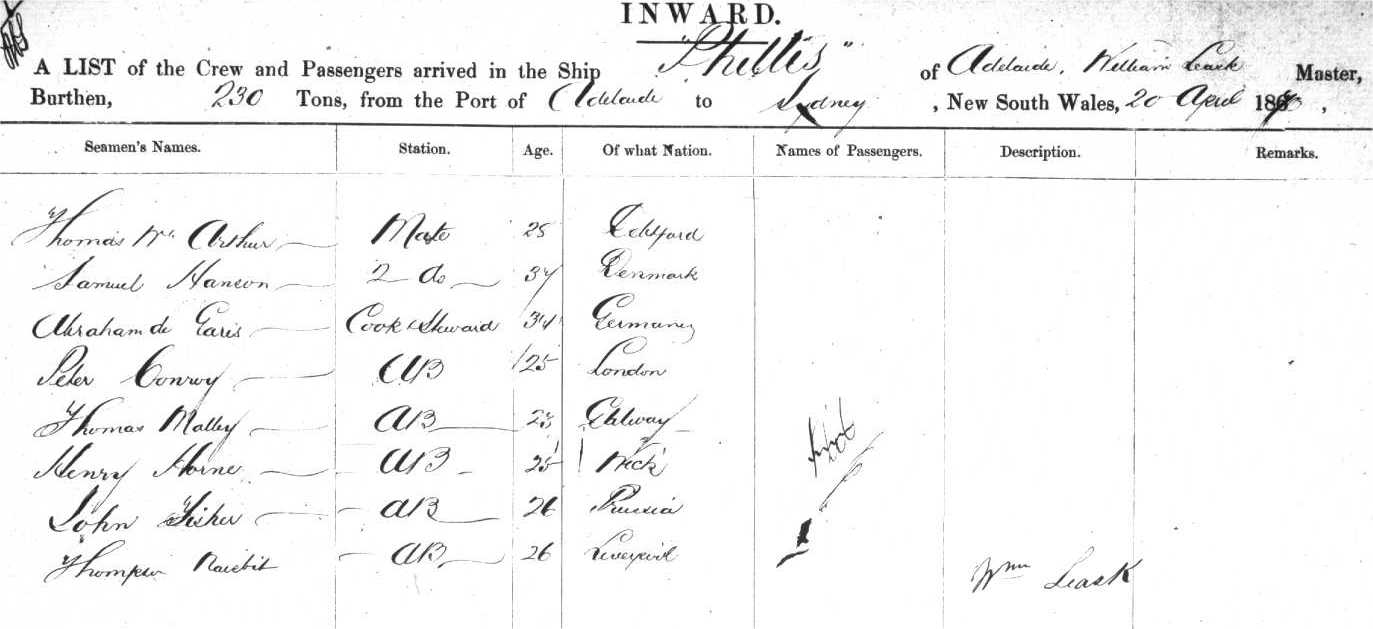 INWARD.
A LIST of the Crew and Passengers arrived in the Ship "Phellis" of Adelaide, William Leask Master,
Burthen, 230 Tons, from the Port of Adelaide to Sydney, New South Wales, 20 April 18
Seamen's Names. Station. Age. Of what Nation. Names of Passengers. Description. Remarks.
Thomas Mc Arthur Mate 25
Samuel Hanson 2 do 37 Denmark
Abraham de Garis Cook & Steward 34 Germany
Peter Conroy AB 25 London
Thomas Malley AB 23 Galway
Henry Horne AB 25 Wick
John Fisher AB 26 Prussia
Thompson AB 26 Liverpool
Wm Leask